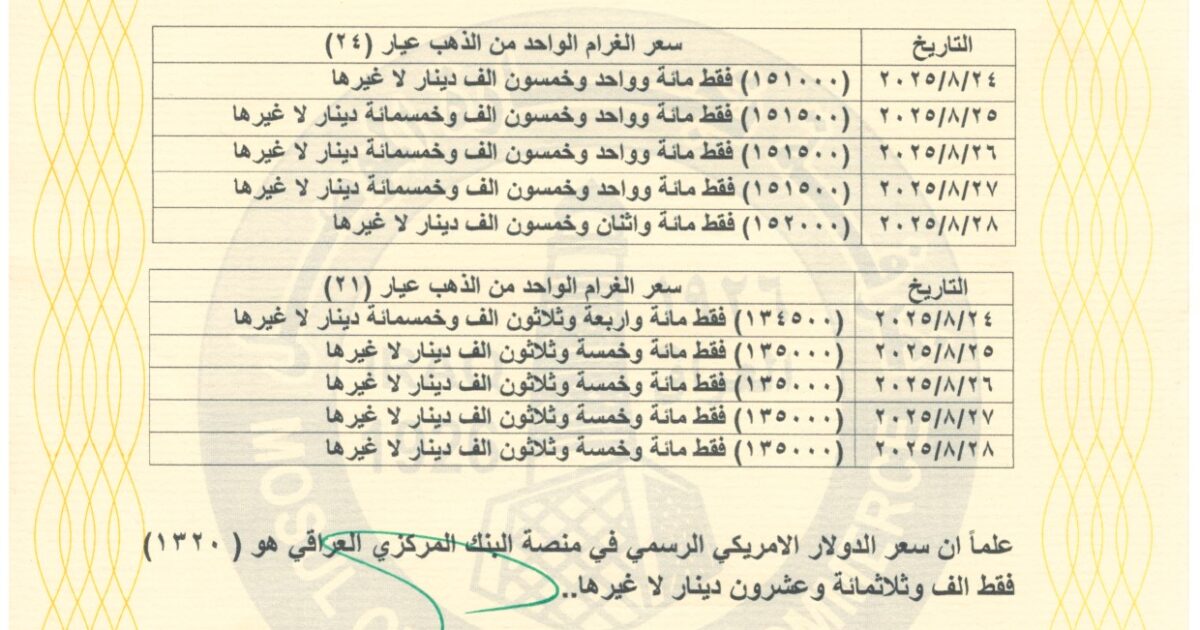 التاريخ سعر الغرام الواحد من الذهب عيار (٢٤)
٢٠٢٥/٨/٢٤ (١٥١٠٠٠) فقط مائة وواحد وخمسون الف دينار لا غيرها
٢٠٢٥/٨/٢٥ (١٥١٥٠٠) فقط مائة وواحد وخمسون الف وخمسمائة دينار لا غيرها
٢٠٢٥/٨/٢٦ (١٥١٥٠٠) فقط مائة وواحد وخمسون الف وخمسمائة دينار لا غيرها
٢٠٢٥/٨/٢٧ (١٥١٥٠٠) فقط مائة وواحد وخمسون الف وخمسمائة دينار لا غيرها
٢٠٢٥/٨/٢٨ (١٥٢٠٠٠) فقط مائة واثنان وخمسون الف دينار لا غيرها
التاريخ سعر الغرام الواحد من الذهب عيار (٢١)
٢٠٢٥/٨/٢٤ (١٣٤٥٠٠) فقط مائة واربعة وثلاثون الف وخمسمائة دينار لا غيرها
٢٠٢٥/٨/٢٥ (١٣٥٠٠٠) فقط مائة وخمسة وثلاثون الف دينار لا غيرها
٢٠٢٥/٨/٢٦ (١٣٥٠٠٠) فقط مائة وخمسة وثلاثون الف دينار لا غيرها
٢٠٢٥/٨/٢٧ (١٣٥٠٠٠) فقط مائة وخمسة وثلاثون الف دينار لا غيرها
٢٠٢٥/٨/٢٨ (١٣٥٠٠٠) فقط مائة وخمسة وثلاثون الف دينار لا غيرها
علماً ان سعر الدولار الامريكي الرسمي في منصة البنك المركزي العراقي هو ( ١٣٢٠)
فقط الف وثلاثمائة وعشرون دينار لا غيرها..
١٩٢٦
MOSUL